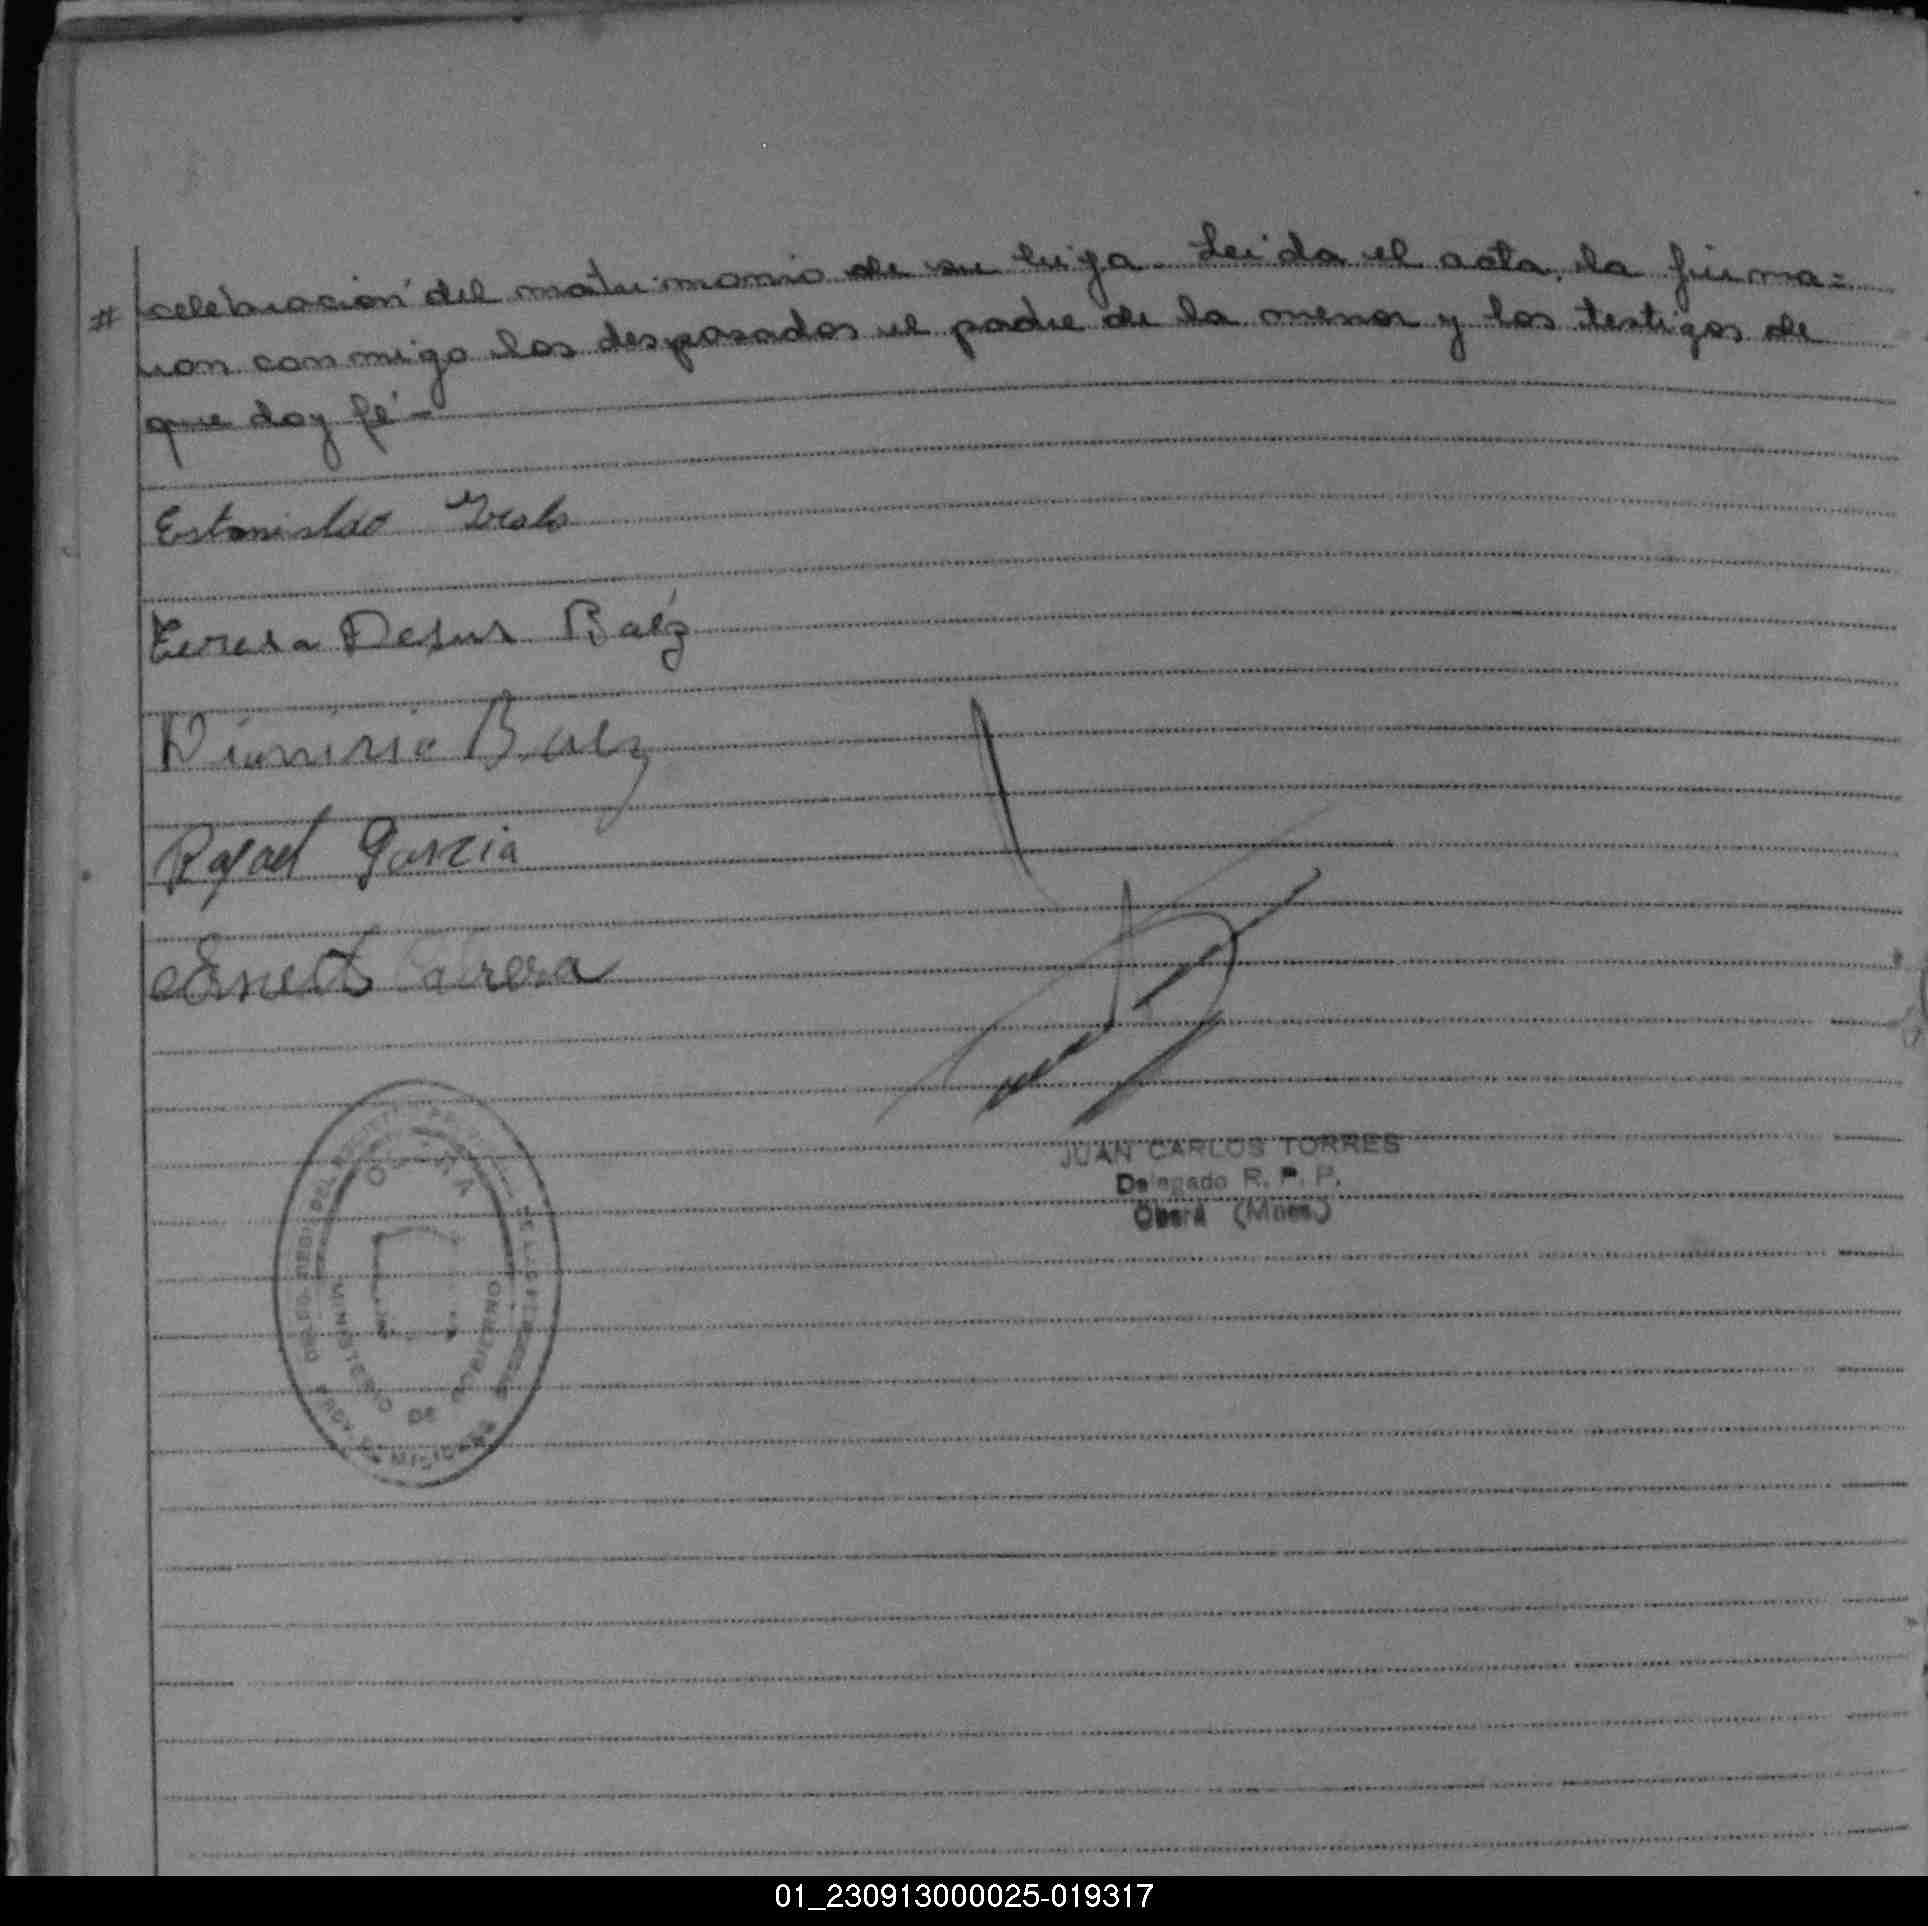 # celebración del matrimonio de su hija. Leida el acta, la firma=
ron conmigo los desposados el padre de la menor y los testigos de
que doy fé -
Estanislao
Teresa Desus Baéz
Dionisio Baez
Rafael Garcia
Ernesto Cabrera
JUAN CARLOS TORRES
Delegado R. P. P.
Oberá (Mnes)
MINISTERIO DE GOBIERNO
MISIONES
01_230913000025-019317